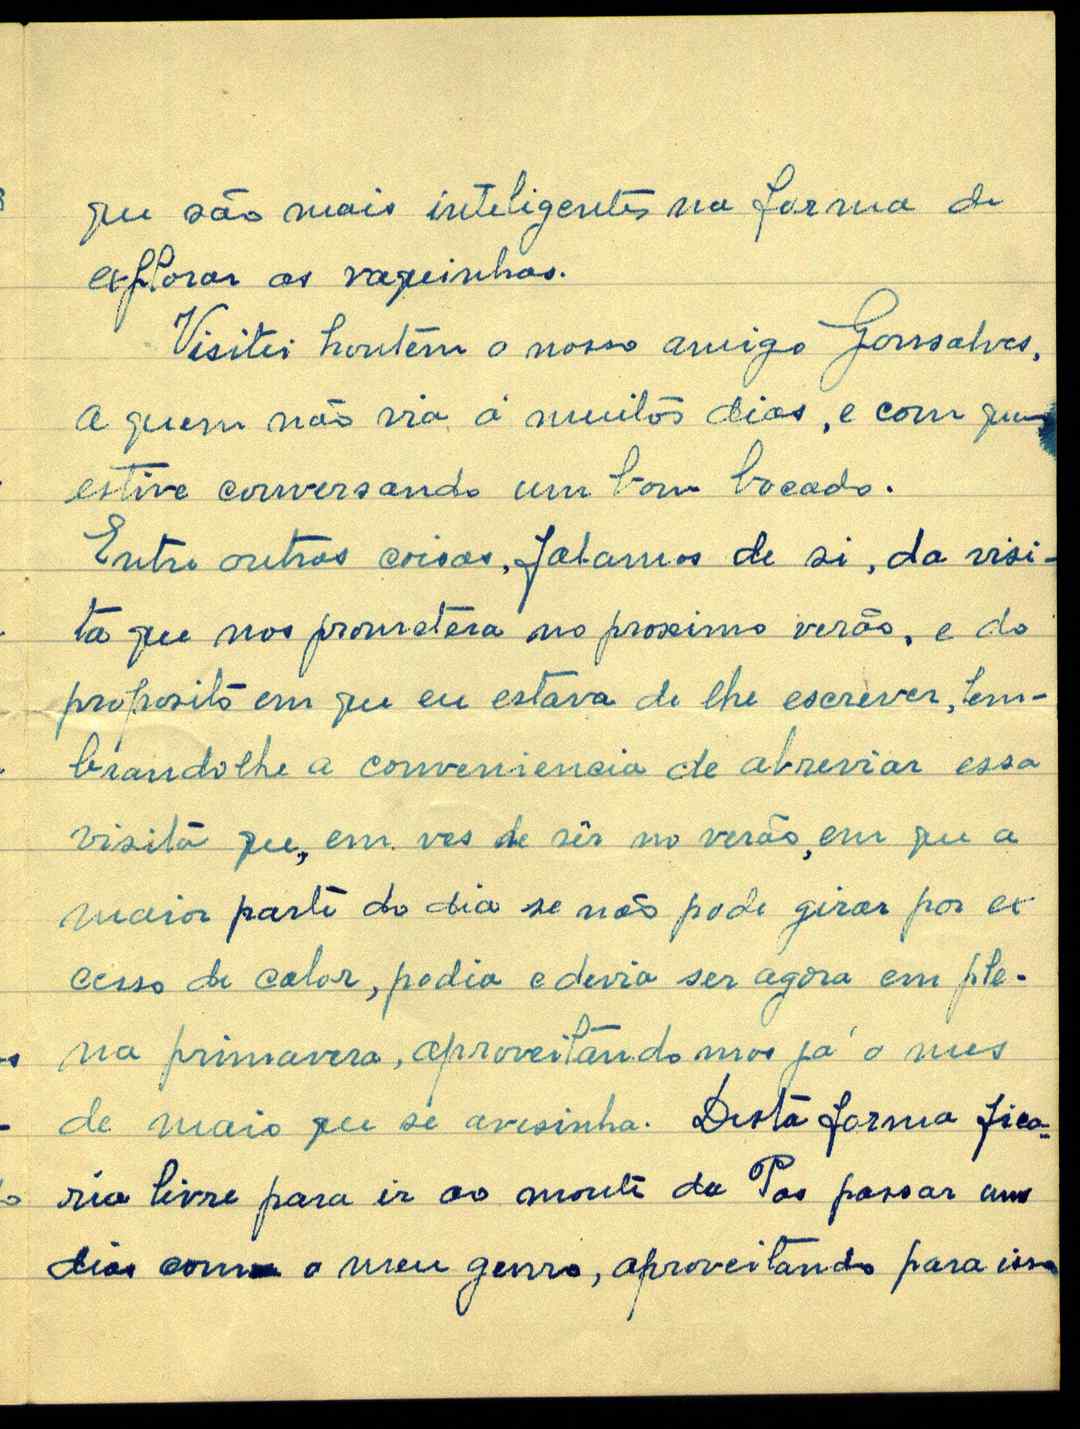 que são mais inteligentes na forma de
explorar as vaquinhas.
Visitei hontem o nosso amigo Gonsalves,
a quem não via á muitos dias, e com quem
estive conversando um bom bocado.
Entre outras coisas, falamos de si, da visi-
ta que nos prometera no proximo verão, e do
proposito em que eu estava de lhe escrever, lem-
brandolhe a conveniencia de abreviar essa
visita que, em ves de sêr no verão, em que a
maior parte do dia se não pode girar por ex
cesso de calor, podia e devia ser agora em ple-
na primavera, aproveitando nos já o mes
de maio que se avesinha. Desta forma fica-
ria livre para ir ao monte da Pas passar uns
dias com o meu genro, aproveitando para isso